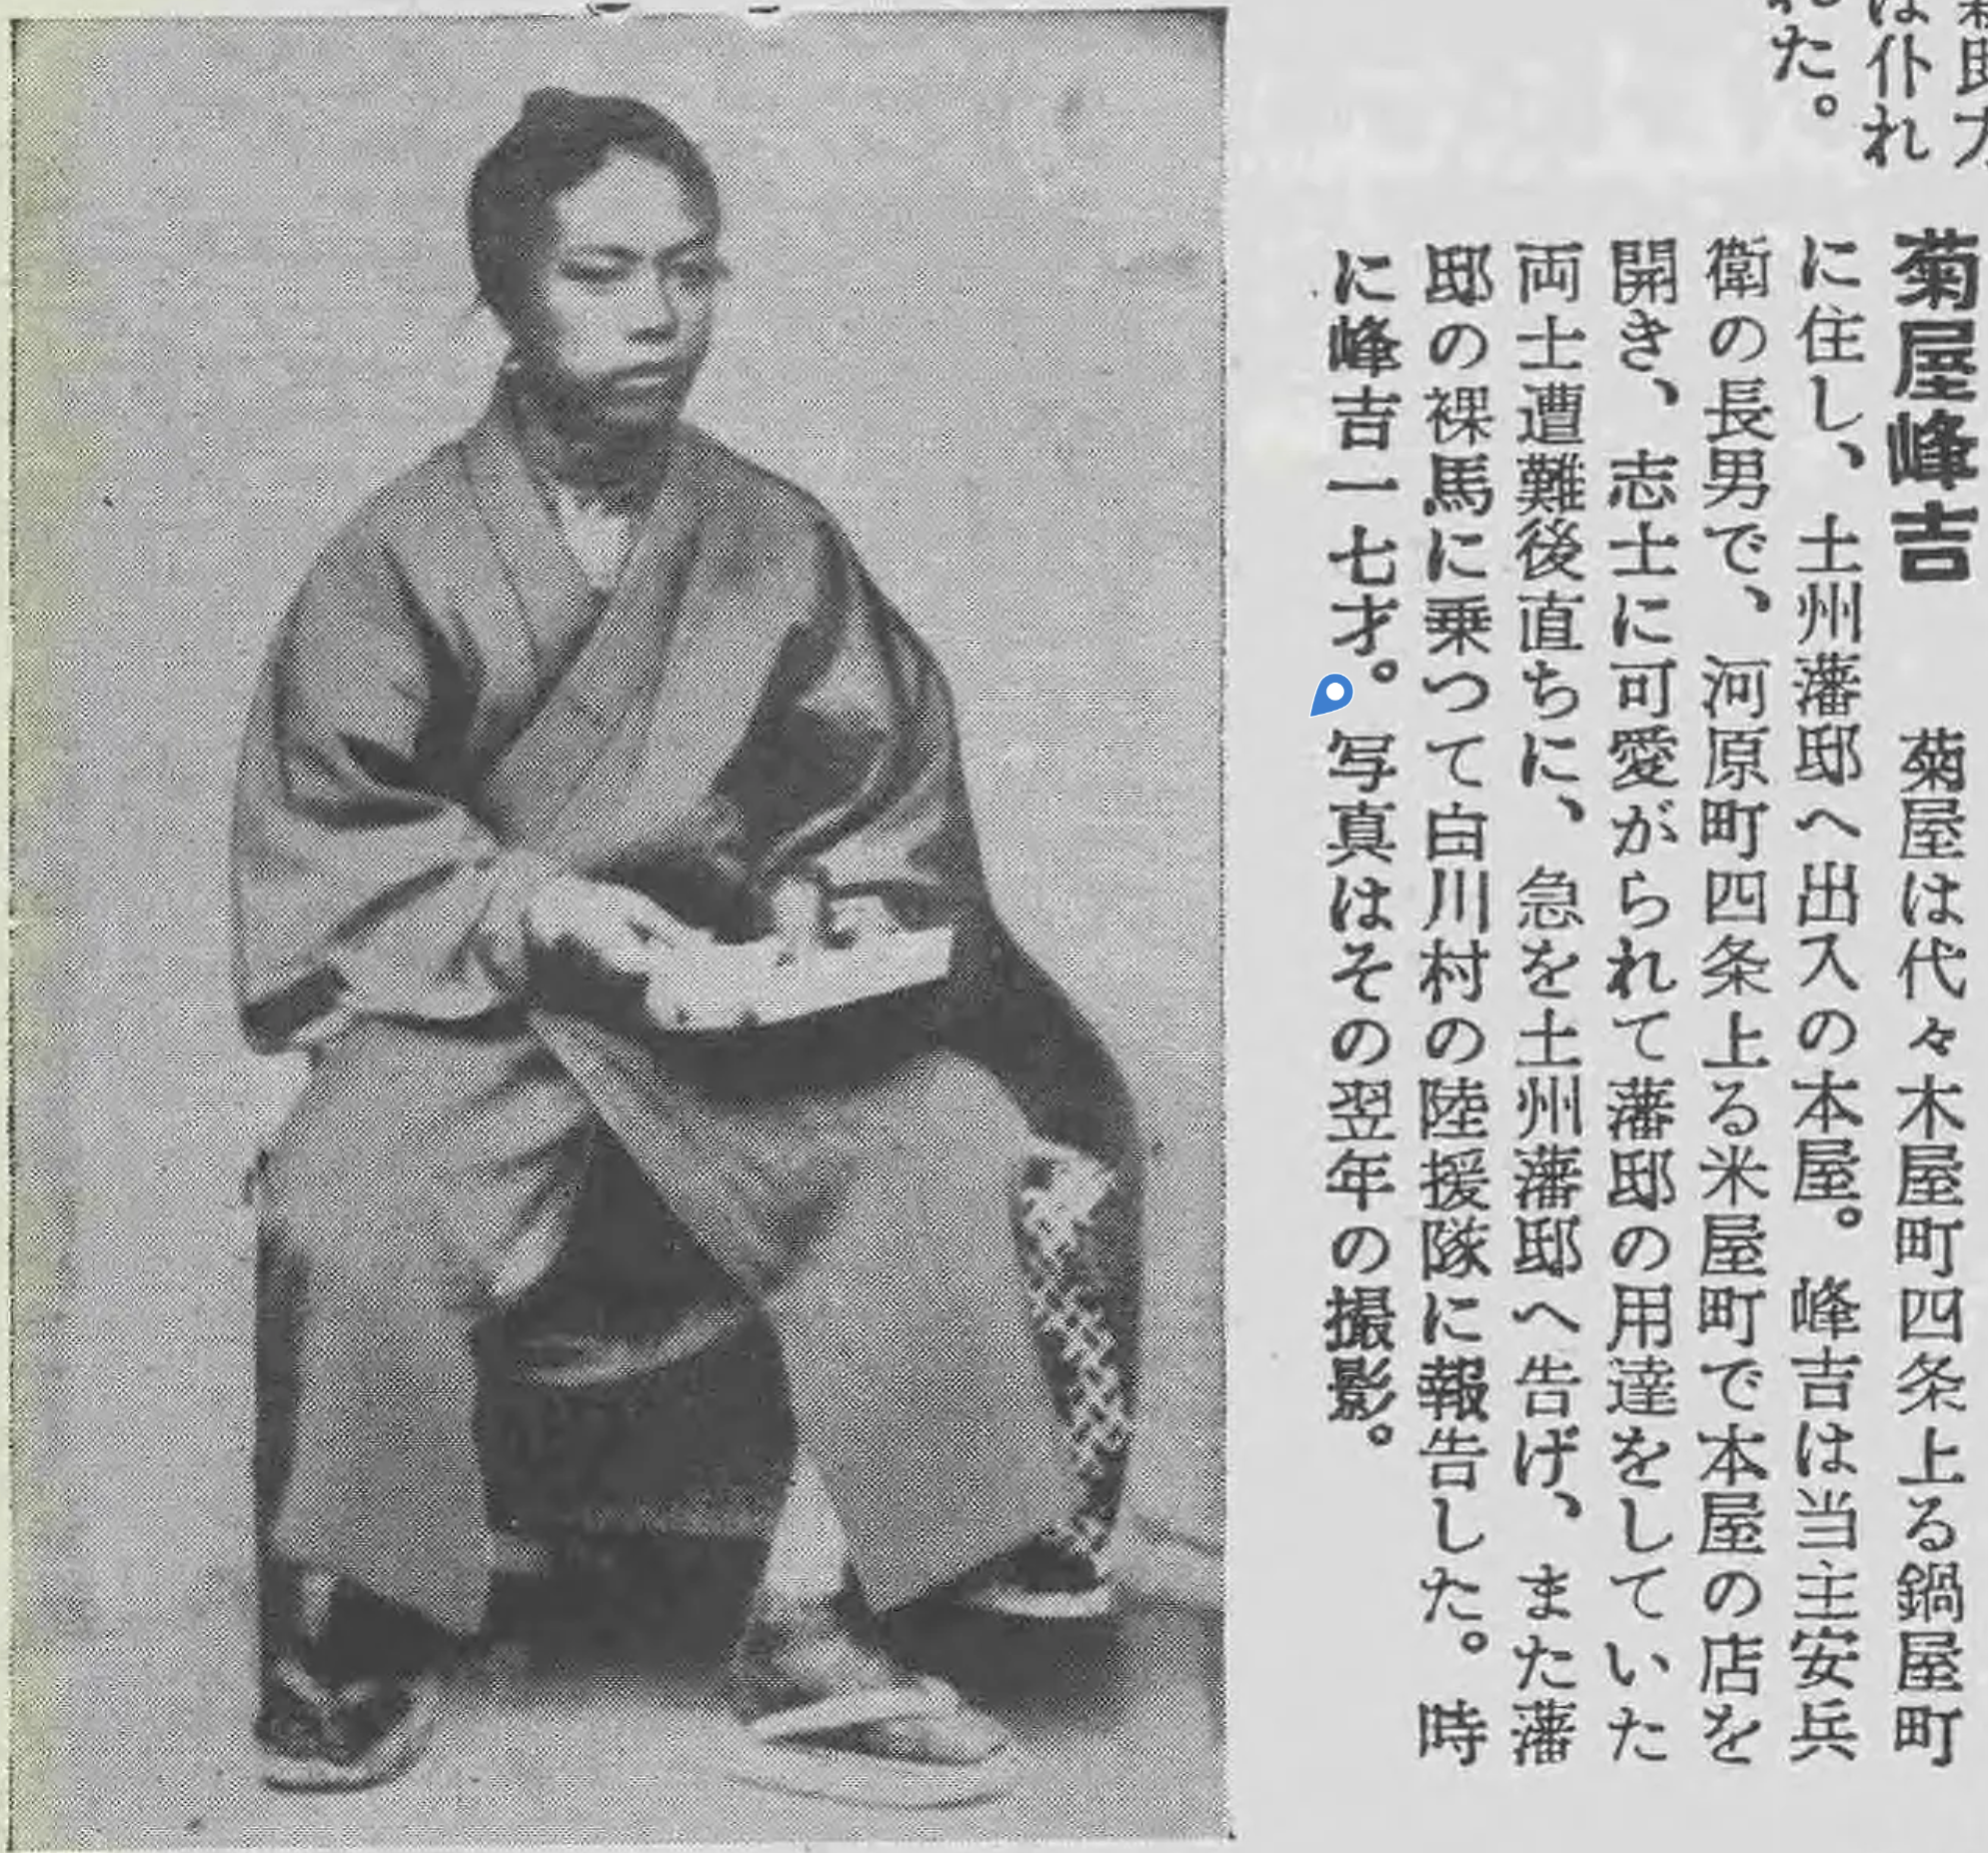 れた。
は仆れ
菊屋峰吉　菊屋は代々木屋町四条上る鍋屋町
に住し、土州藩邸へ出入の本屋。峰吉は当主安兵
衛の長男で、河原町四条上る米屋町で本屋の店を
開き、志士に可愛がられて藩邸の用達をしていた
両士遭難後直ちに、急を土州藩邸へ告げ、また藩
邸の裸馬に乗つて白川村の陸援隊に報告した。時
に峰吉一七才。写真はその翌年の撮影。